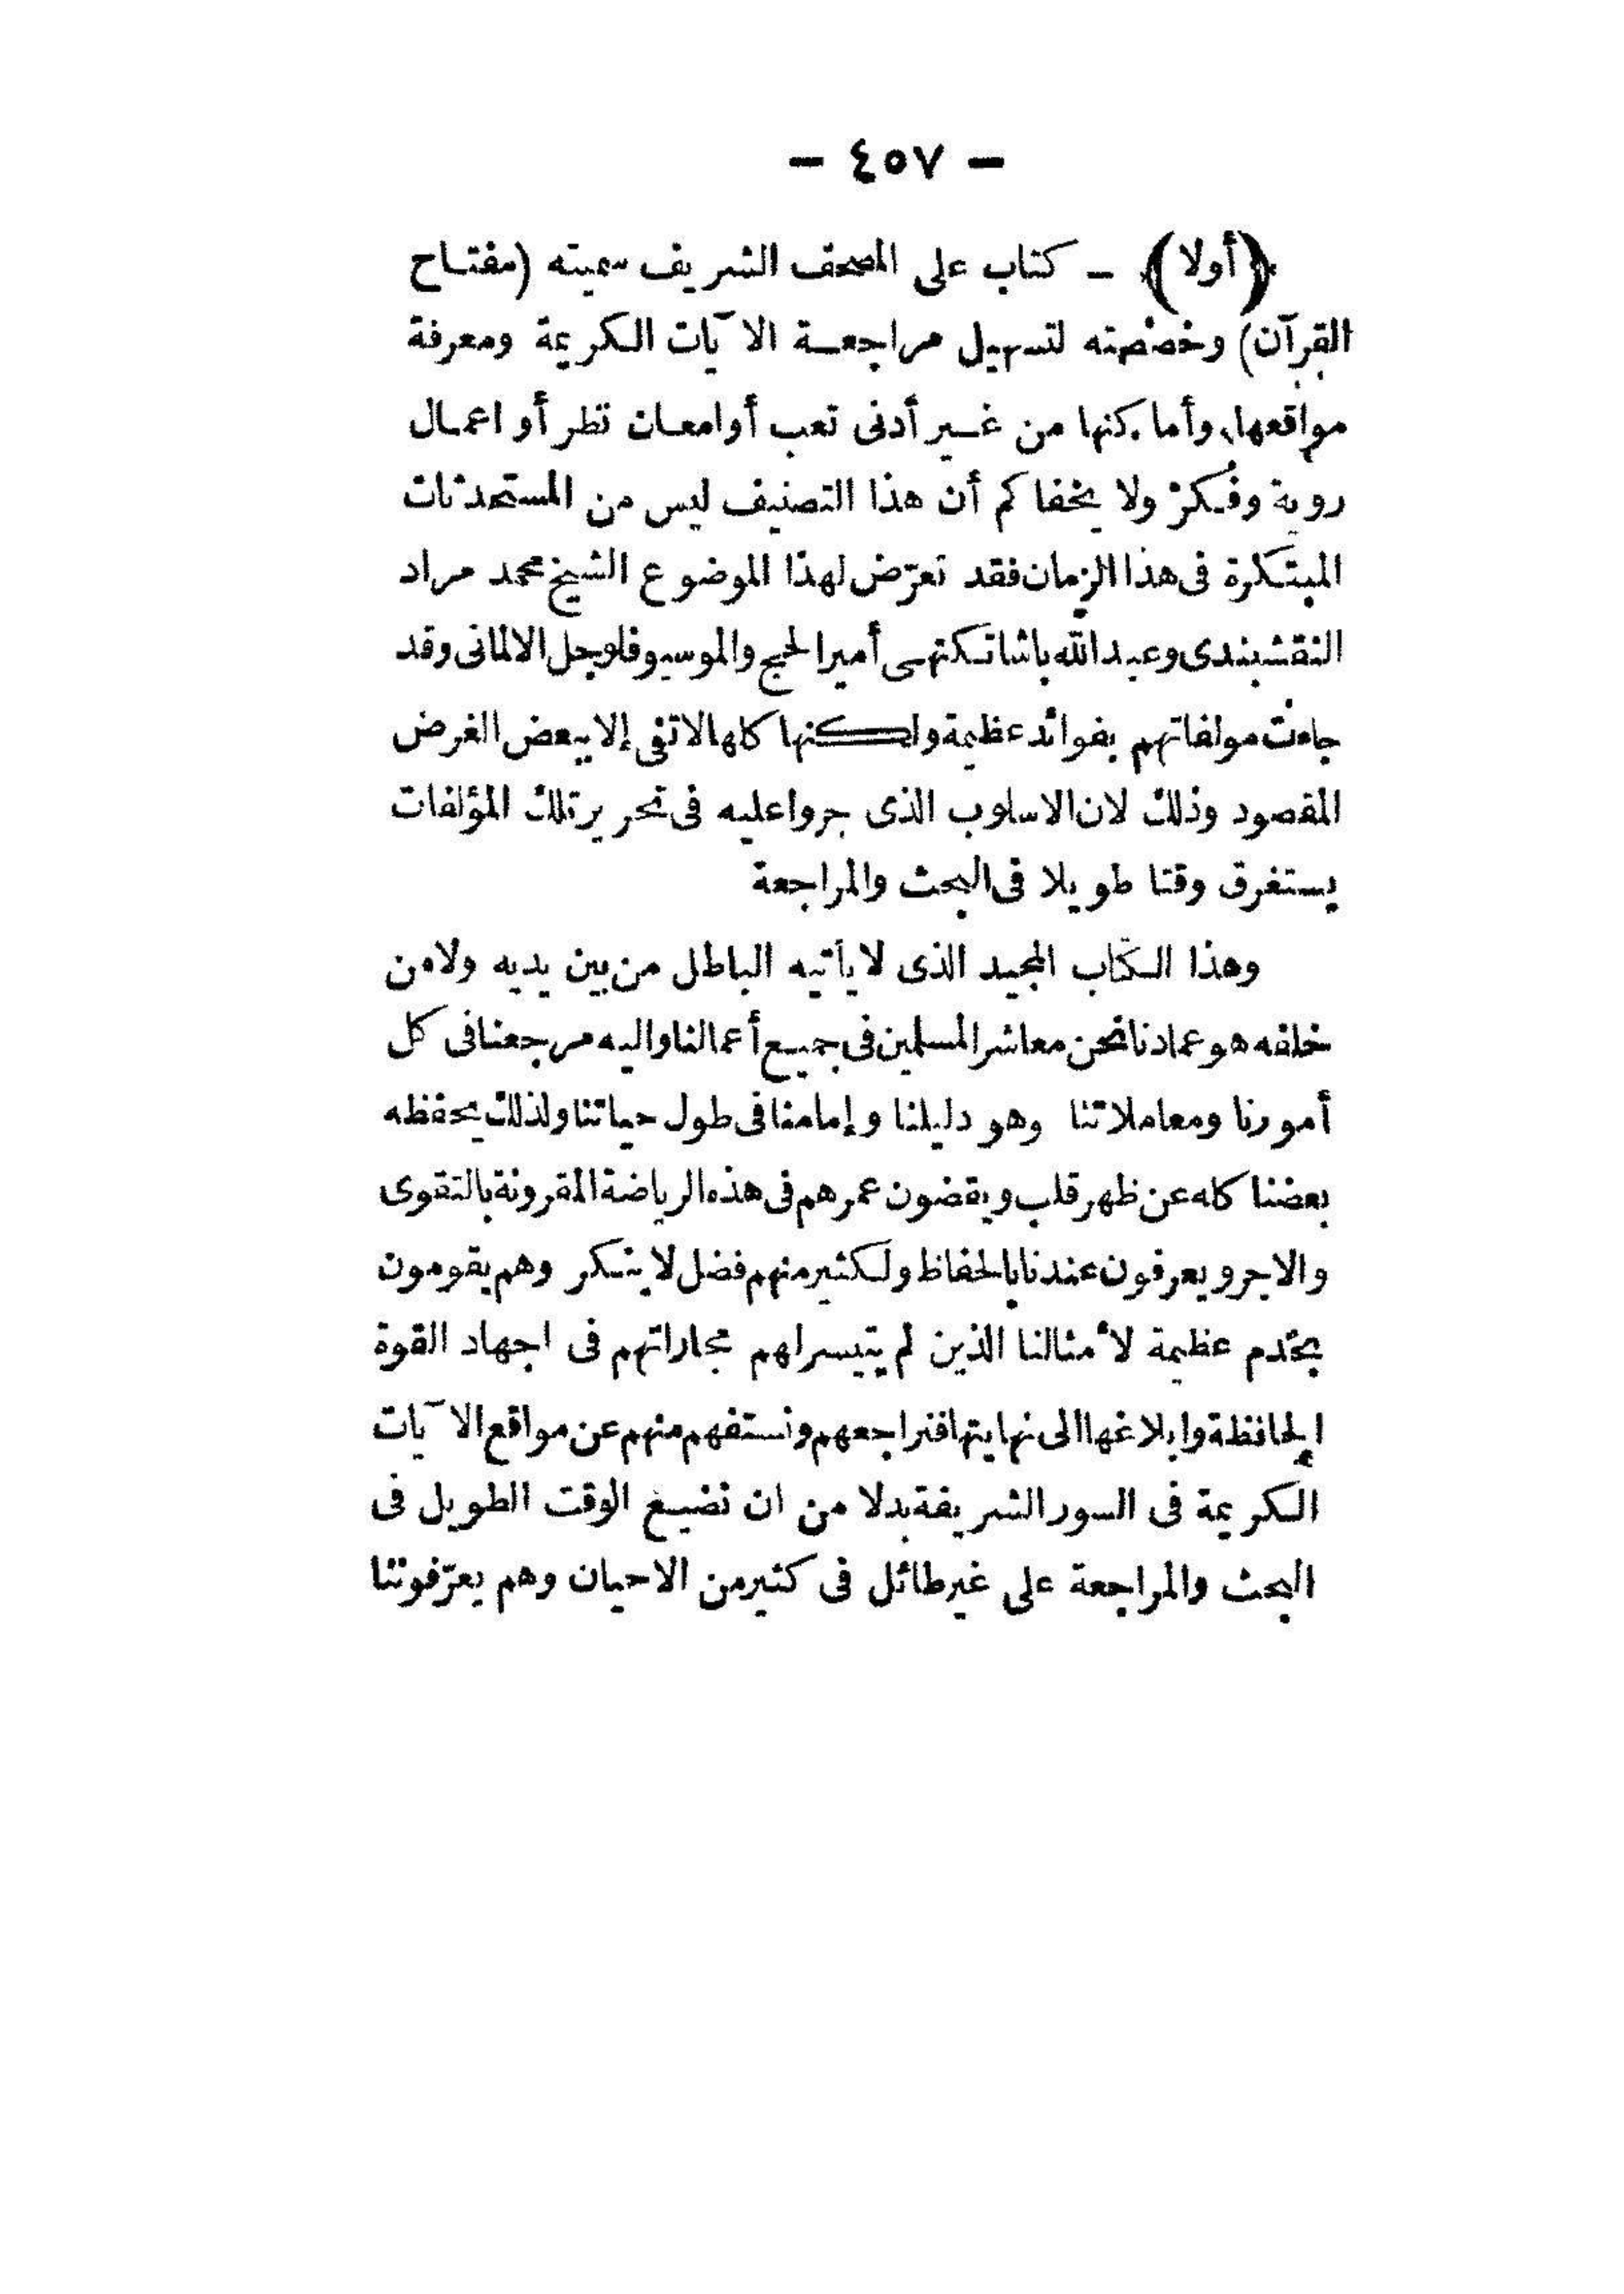 — ٤٥٧ —
﴿أولا﴾ — كتاب على المصحف الشريف سميته (مفتاح
القرآن) وخصصته لتسهيل مراجعة الآيات الكريمة ومعرفة
مواقعها، وأماكنها من غير أدنى تعب أوامعان نظر أو اعمال
روية وفكر ولا يخفاكم أن هذا التصنيف ليس من المستحدثات
المبتكرة فى هذا الزمان فقد تعرّض لهذا الموضوع الشيخ محمد مراد
النقشبندى وعبدالله باشا تكتهى أميرالحج والموسيو فلوجل الالمانى وقد
جاءت مولفاتهم بفوائد عظيمة ولكنها كلها لا تفى إلا ببعض الغرض
المقصود وذلك لان الاسلوب الذى جروا عليه فى تحرير تلك المؤلفات
يستغرق وقتا طويلا فى البحث والمراجعة
وهذا الكتاب المجيد الذى لا يأتيه الباطل من بين يديه ولا من
خلفه هو عمادنا نحن معاشر المسلمين فى جميع أعمالنا واليه مرجعنا فى كل
أمورنا ومعاملاتنا وهو دليلنا وإمامنا فى طول حياتنا ولذلك يحفظه
بعضنا كله عن ظهر قلب ويقضون عمرهم فى هذه الرياضة المقرونة بالتقوى
والاجر ويعرفون عندنا بالحفاظ ولكثير منهم فضل لا ينكر وهم يقومون
بخدم عظيمة لأمثالنا الذين لم يتيسر لهم مجاراتهم فى اجهاد القوة
الحافظة وابلاغها الى نهايتها فنراجعهم ونستفهم منهم عن مواقع الآيات
الكريمة فى السور الشريفة بدلا من ان نضيع الوقت الطويل فى
البحث والمراجعة على غير طائل فى كثير من الاحيان وهم يعرّفوننا